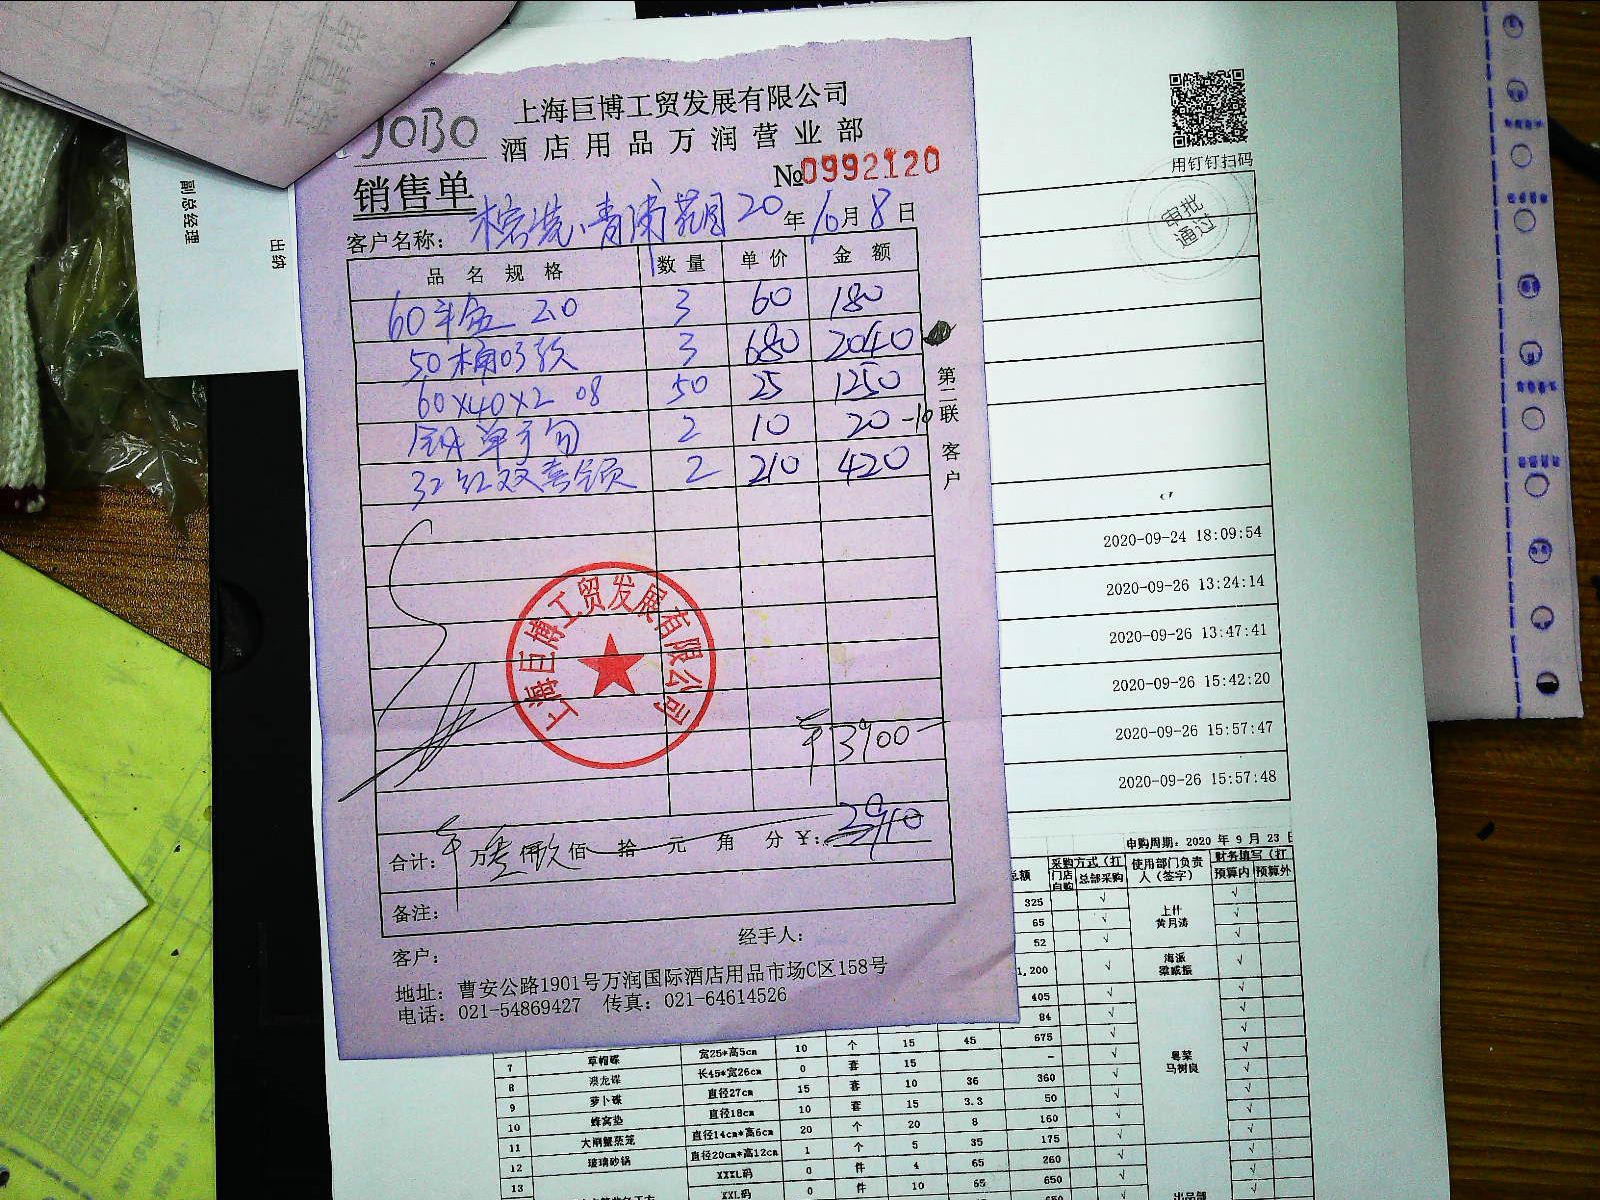 JOBO
上海巨博工贸发展有限公司
酒店用品万润营业部
销售单
№0992120
客户名称： 青浦 20年10月8日
品名规格 数量 单价 金额
60 20 3 60 180
50桶03 3 680 2040
60×40×2 08 50 25 1250
单 2 10 20 -10
32红双喜 2 210 420
第二联 客户
上海巨博工贸发展有限公司
¥3900
合计： 万 仟 佰 拾 元 角 分 ¥：
备注：
客户： 经手人：
地址：曹安公路1901号万润国际酒店用品市场C区158号
电话：021-54869427 传真：021-64614526
副总经理
出纳
用钉钉扫码
审批通过
2020-09-24 18:09:54
2020-09-26 13:24:14
2020-09-26 13:47:41
2020-09-26 15:42:20
2020-09-26 15:57:47
2020-09-26 15:57:48
申购周期：2020 年 9 月 23
总额 采购方式（打 使用部门负责人（签字） 财务填写（打
门店自购 总部采购 预算内 预算外
325 √ √
65 √ √
上什
黄月涛
52 √ √
1,200 √ 海派 梁威振 √
405 √ √
84 √ √
7 草帽碟 宽25*高5cm 10 个 15 45 675 √ √
8 澳龙碟 长45*宽26cm 0 套 15 - √ √
粤菜
马树良
9 萝卜碟 直径27cm 15 套 10 36 360 √ √
10 蜂窝垫 直径18cm 10 套 15 3.3 50 √ √
11 大闸蟹蒸笼 直径14cm*高6cm 20 个 20 8 160 √ √
12 玻璃砂锅 直径20cm*高12cm 1 个 5 35 175 √ √
13 XXXL码 0 件 4 65 260 √ √
XXL码 0 件 10 65 650 √ √
出品部